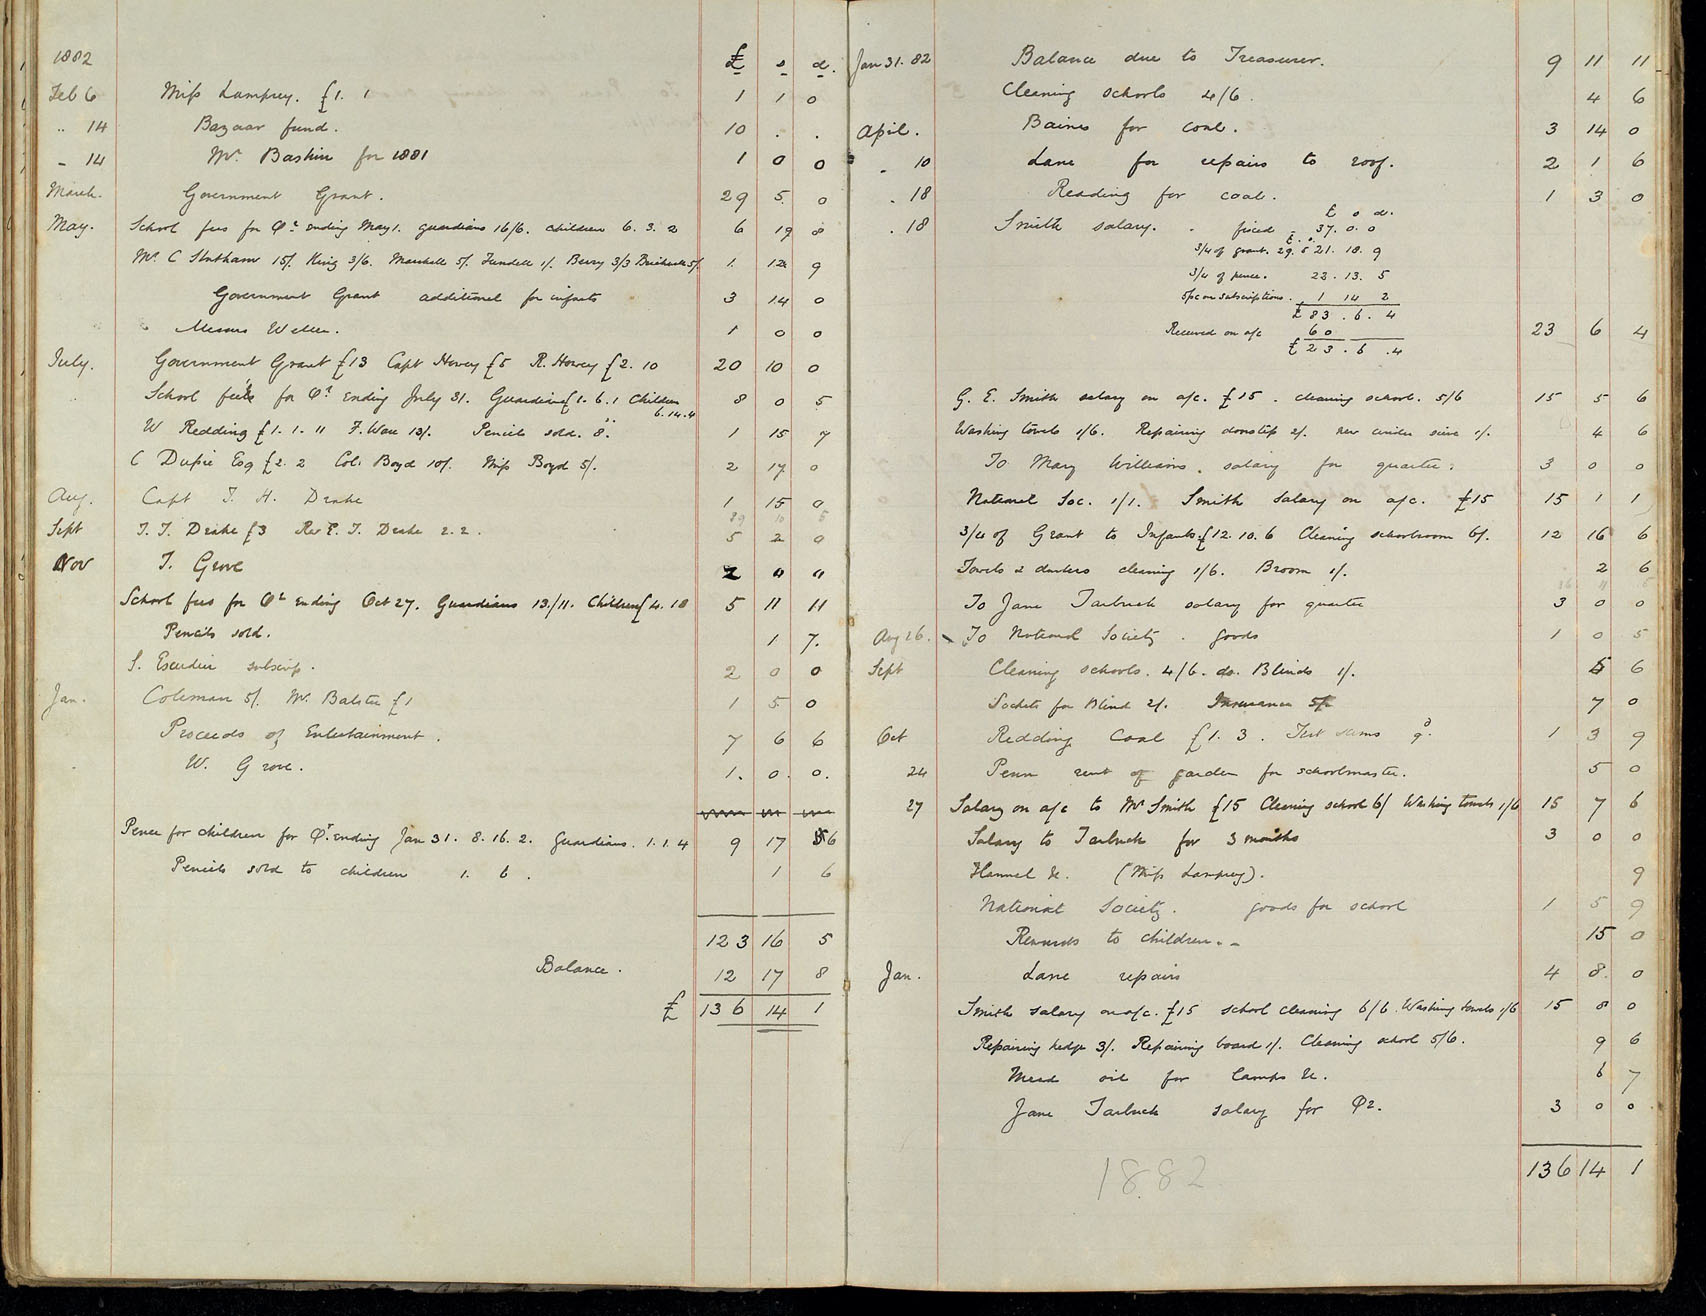 1882 £ s d.
Feb 6 Miss Lamprey. £1. 1 1 1 0
" 14 Bazaar fund. 10 . .
– 14 Mr. Baskin for 1881 1 0 0
March. Government Grant. 29 5 0
May. School fees for Qr ending May 1. guardians 16/6. children 6. 3. 2 6 19 8
Mr C 15/. King 3/6. Marshall 5/. 1/. Berry 3/3 5/. 1. 12 9
Government Grant additional for infants 3 14 0
Messrs Weller. 1 0 0
July. Government Grant £13 Capt Howey £5 R. Howey £2. 10 20 10 0
School fees for Qr ending July 31. Guardians £1. 6. 1 Children 8 0 5
6. 14. 4
W Redding £1. 1. 11 F. Ware 13/. Pencils sold. 8. 1 15 7
C Dupré Esq £2. 2 Col: Boyd 10/. Miss Boyd 5/. 2 17 0
Aug. Capt T. H. Drake 1 15 0
89 10 5
Sept T. T. Drake £3 Rev E. T. Drake 2. 2. 5 2 0
Nov T. Grove 2 " "
School fees for Qr ending Oct 27. Guardians 13/11. Children £4. 18 5 11 11
Pencils sold. 1 7.
S. Escudier subscrip. 2 0 0
Jan. Coleman 5/. Mr. Batster £1 1 5 0
Proceeds of Entertainment. 7 6 6
W. Grove. 1. 0. 0.
Pence for children for Qr. ending Jan 31. 8. 16. 2. Guardians. 1. 1. 4 9 17 6
Pencils sold to children 1. 6. 1 6
123 16 5
Balance. 12 17 8
£ 136 14 1
Jan 31. 82 Balance due to Treasurer. 9 11 11
Cleaning schools 4/6. 4 6
April. Baines for coal. 3 14 0
" 10 Lane for repairs to roof. 2 1 6
" 18 Redding for coal. 1 3 0
£ s d.
. 18 Smith salary. - fixed - 37. 0. 0
3/4 of grant. 29. 5 21. 18. 9
3/4 of pence. 22. 13. 5
5pc on subscriptions. 1 14 2
£ 83. 6. 4
Received on a/c 60 23 6 4
£ 23. 6. 4
G. E. Smith salary on a/c. £15. cleaning school. 5/6 15 5 6
Washing towels 1/6. Repairing doorstep 2/. new cinder sieve 1/. 4 6
To Mary Williams, salary for quarter. 3 0 0
National Soc. 1/1. Smith salary on a/c. £15 15 1 1
3/4 of Grant to Infants £12. 10. 6 Cleaning schoolroom 6/. 12 16 6
Towels & dusters cleaning 1/6. Broom 1/. 2 6
To Jane Tarbuck salary for quarter 3 0 0
Aug 26. To National Society. goods 1 0 5
Sept Cleaning schools. 4/6. do. Blinds 1/. 5 6
Sockets for Blind 2/. Insurance 5/. 7 0
Oct Redding Coal £1. 3. Test sums 9d. 1 3 9
24 Penn rent of garden for schoolmaster. 5 0
27 Salary on a/c to Mr Smith £15 Cleaning school 6/ Washing towels 1/6 15 7 6
Salary to Tarbuck for 3 months 3 0 0
Flannel &c. (Miss Lamprey). 9
National Society. goods for school 1 5 9
Rewards to children. - 15 0
Jan. Lane repairs 4 8. 0
Smith salary on a/c. £15 school cleaning 6/6. Washing towels 1/6 15 8 0
Repairing hedge 3/. Repairing board 1/. Cleaning school 5/6. 9 6
Mead oil for Lamps &c. 6 7
Jane Tarbuck salary for Qr. 3 0 0
136 14 1
1882